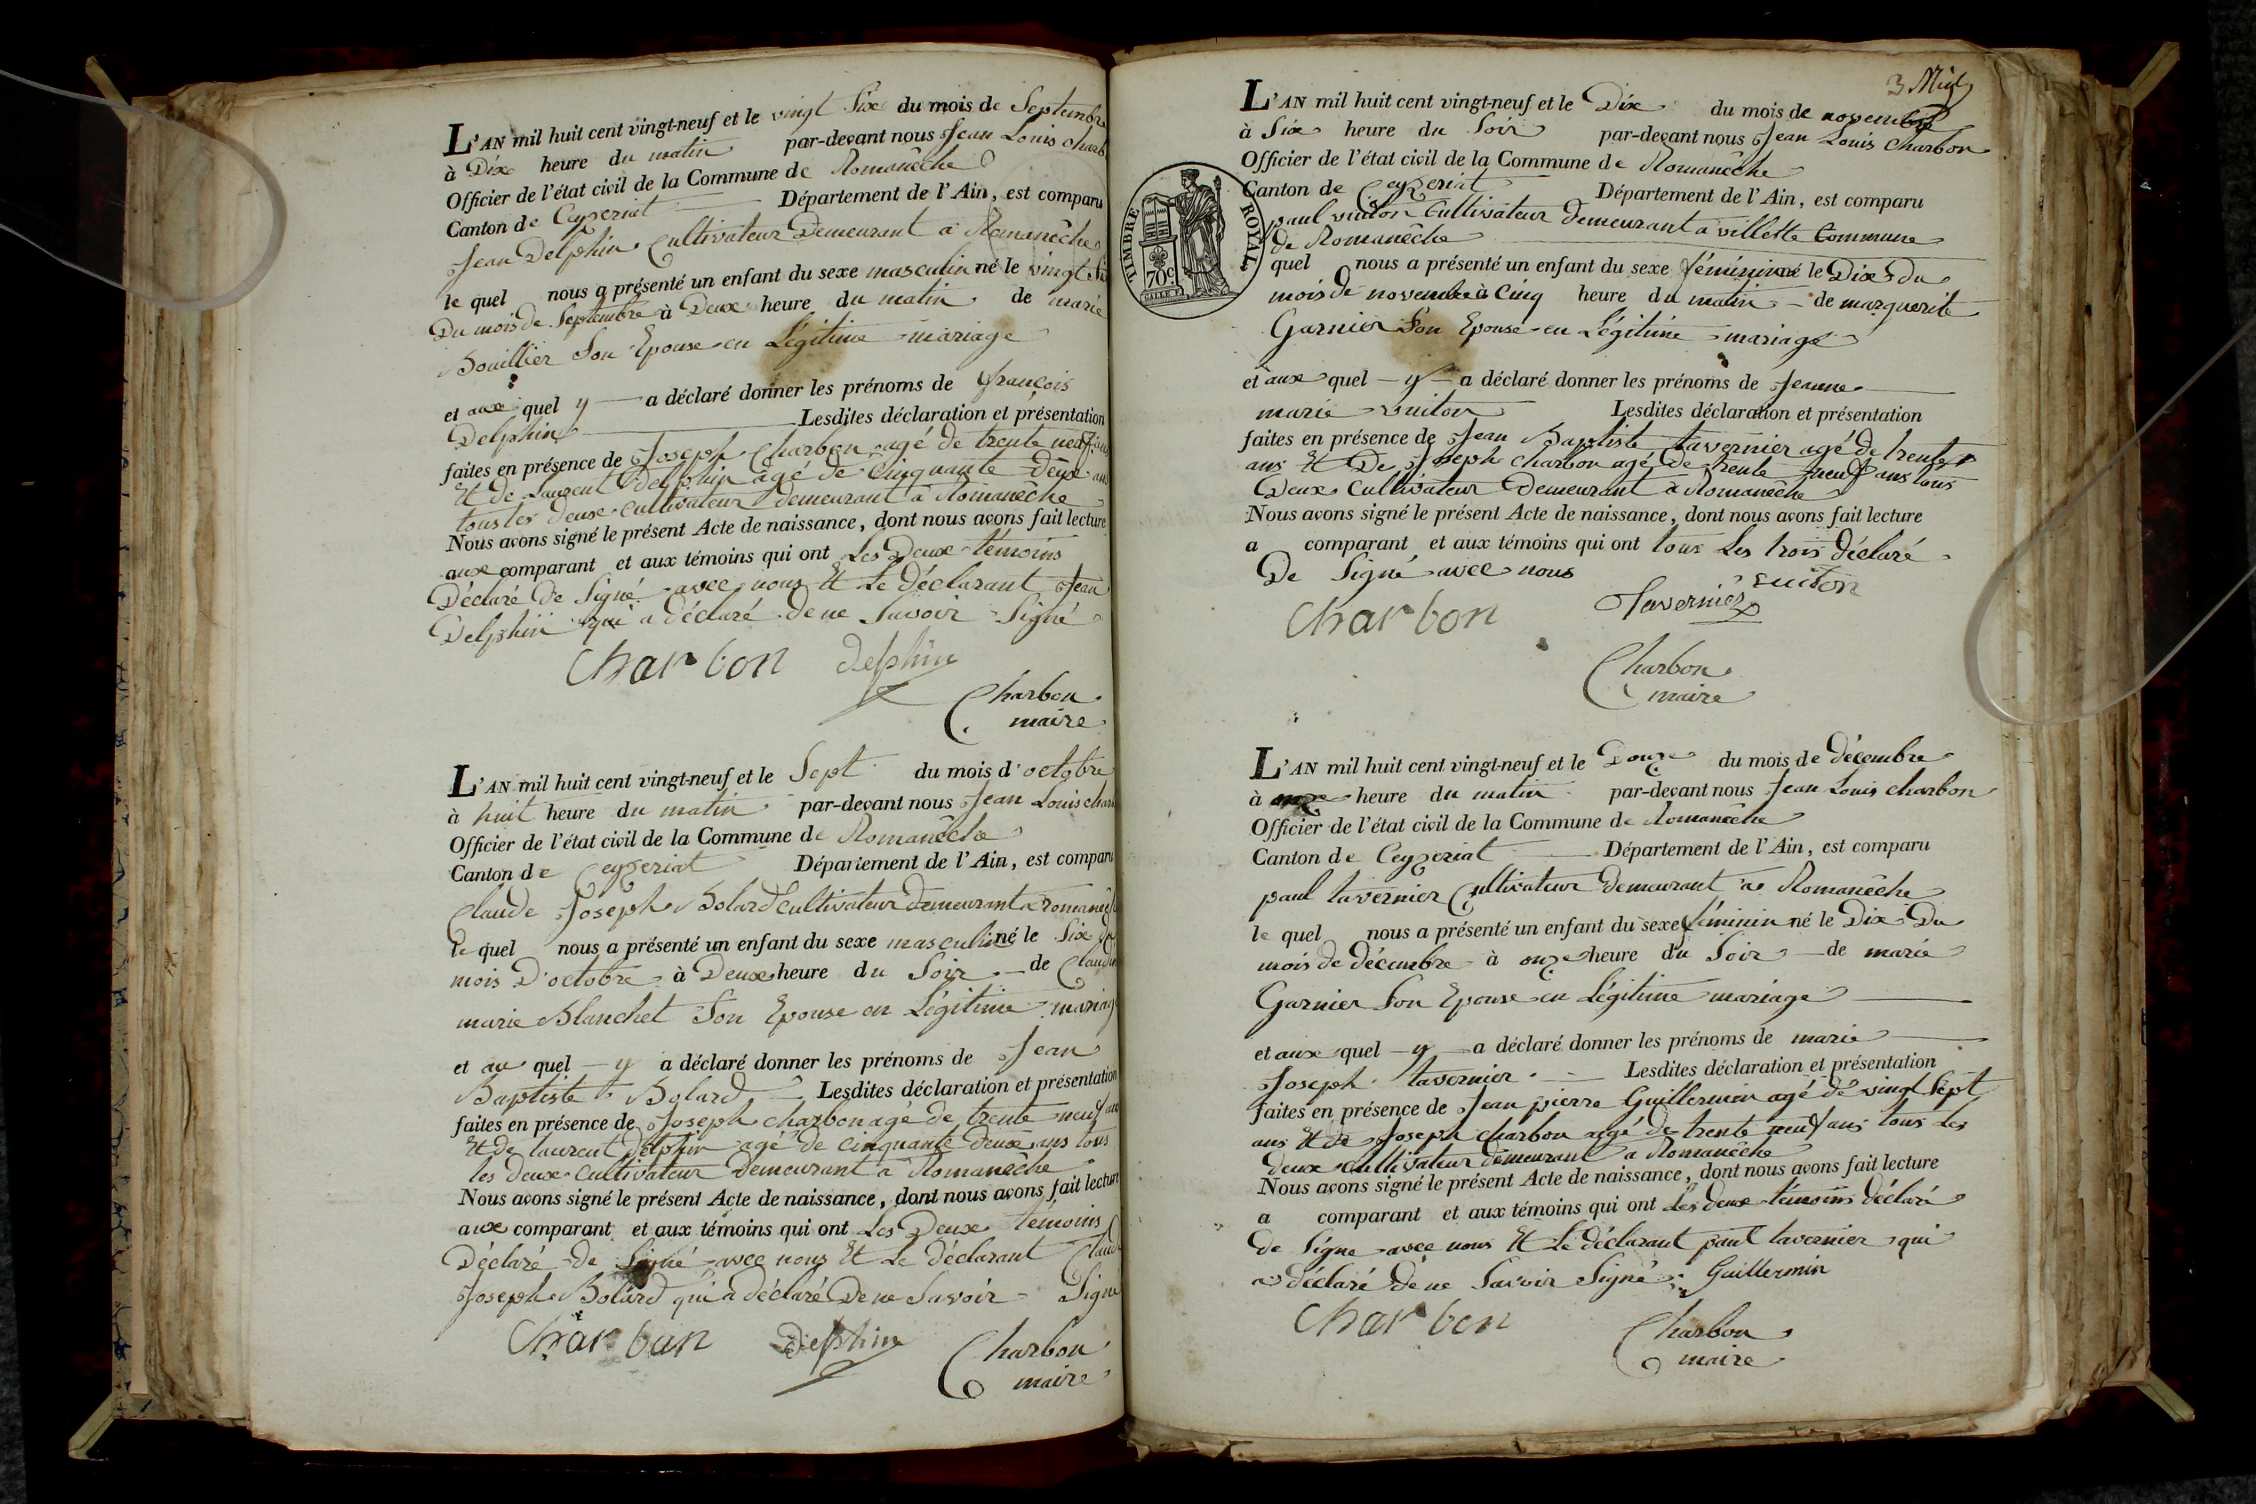 L'AN mil huit cent vingt-neuf et le vingt Six du mois de Septembre
à Dix heure du matin par-devant nous Jean Louis Charb
Officier de l'état civil de la Commune de Romanêche
Canton de Ceyzeriat Département de l'Ain, est comparu
Jean Delphin Cultivateur Demeurant à Romanêche
le quel nous a présenté un enfant du sexe masculin né le vingt Six
Du mois de Septembre à Deux heure du matin de marie
Bouillier Son Epouse en Légitime mariage
et aux quel y a déclaré donner les prénoms de françois
Delphin Lesdites déclaration et présentation
faites en présence de Joseph Charbon agé de trente neuf ans
Et de Laurent Delphin agé de Cinquante Deux ans
tous les deux cultivateur demeurant à Romanêche
Nous avons signé le présent Acte de naissance, dont nous avons fait lecture
aux comparant et aux témoins qui ont Les Deux témoins
Déclaré De Signé avec nous Et Le déclarant Jean
Delphin qui a déclaré de ne Savoir Signé
Charbon delphin
Charbon
maire
L'AN mil huit cent vingt-neuf et le Sept du mois d'octobre
à huit heure du matin par-devant nous Jean Louis char
Officier de l'état civil de la Commune de Romanêche
Canton de Ceyzeriat Département de l'Ain, est comparu
Claude Joseph Bolard Cultivateur demeurant a romanêch
le quel nous a présenté un enfant du sexe masculin né le Six du
mois D'octobre à Deux heure du Soir de Claudin
marie Blanchet Son Epouse en Légitime mariag
et au quel y a déclaré donner les prénoms de Jean
Baptiste Bolard Lesdites déclaration et présentation
faites en présence de Joseph charbon agé de trente neuf ans
Et de laurent Delphin agé de cinquante Deux ans tous
les deux cultivateur Demeurant à Romanêche
Nous avons signé le présent Acte de naissance, dont nous avons fait lecture
aux comparant et aux témoins qui ont Les Deux témoins
Déclaré de Signé avec nous Et Le déclarant Claud
Joseph Bolard qui a déclaré De ne Savoir Signé
Charban delphin
Charbon
maire
TIMBRE ROYAL
70c
3
L'AN mil huit cent vingt-neuf et le Dix du mois de novembre
à Six heure du Soir par-devant nous Jean Louis Charbon
Officier de l'état civil de la Commune de Romanêche
Canton de Ceyzeriat Département de l'Ain, est comparu
paul vuiton Cultivateur demeurant à villette Commune
de Romanêche
quel nous a présenté un enfant du sexe féminin né le Dix du
mois de novembre à Cinq heure du matin de marguerite
Garnier Son Epouse en Légitime mariage
et aux quel y a déclaré donner les prénoms de Jeanne
marie vuiton Lesdites déclaration et présentation
faites en présence de Jean Baptiste tavernier agé de trente
ans Et De Joseph charbon agé De trente neuf ans tous
Deux Cultivateur Demeurant à Romanêche
Nous avons signé le présent Acte de naissance, dont nous avons fait lecture
a comparant et aux témoins qui ont tous Les trois déclaré
De Signé avec nous
Charbon Tavernier vuiton
Charbon
maire
L'AN mil huit cent vingt-neuf et le Douze du mois de décembre
à onze heure du matin par-devant nous Jean Louis charbon
Officier de l'état civil de la Commune de Romanêche
Canton de Ceyzeriat Département de l'Ain, est comparu
paul tavernier Cultivateur demeurant à Romanêche
le quel nous a présenté un enfant du sexe féminin né le Dix Du
mois de décembre à onze heure du Soir de marie
Garnier Son Epouse en Légitime mariage
et aux quel y a déclaré donner les prénoms de marie
Joseph tavernier Lesdites déclaration et présentation
faites en présence de Jean pierre Guillermin agé de vingt Sept
ans Et de Joseph charbon agé de trente neuf ans tous Les
deux cultivateur demeurant à Romanêche
Nous avons signé le présent Acte de naissance, dont nous avons fait lecture
a comparant et aux témoins qui ont Les deux témoins déclaré
de Signe avec nous Et Le déclarant paul tavernier qui
a déclaré de ne Savoir Signé Guillermin
Charbon
Charbon
maire